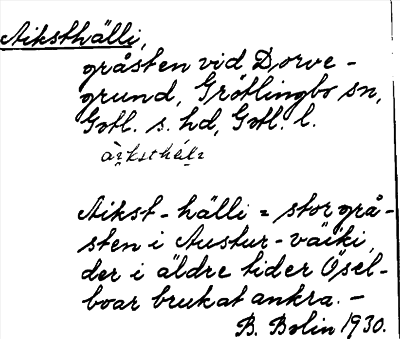 Aiksthälli,
gråsten vid Dorve-
grund, Grötlingbo sn,
Gotl. s. hd, Gotl. l.
Aikst-hälli = stor grå-
sten i Austur-väiki,
der i äldre tider Ösel-
boar brukat ankra. –
B. Bolin 1930.